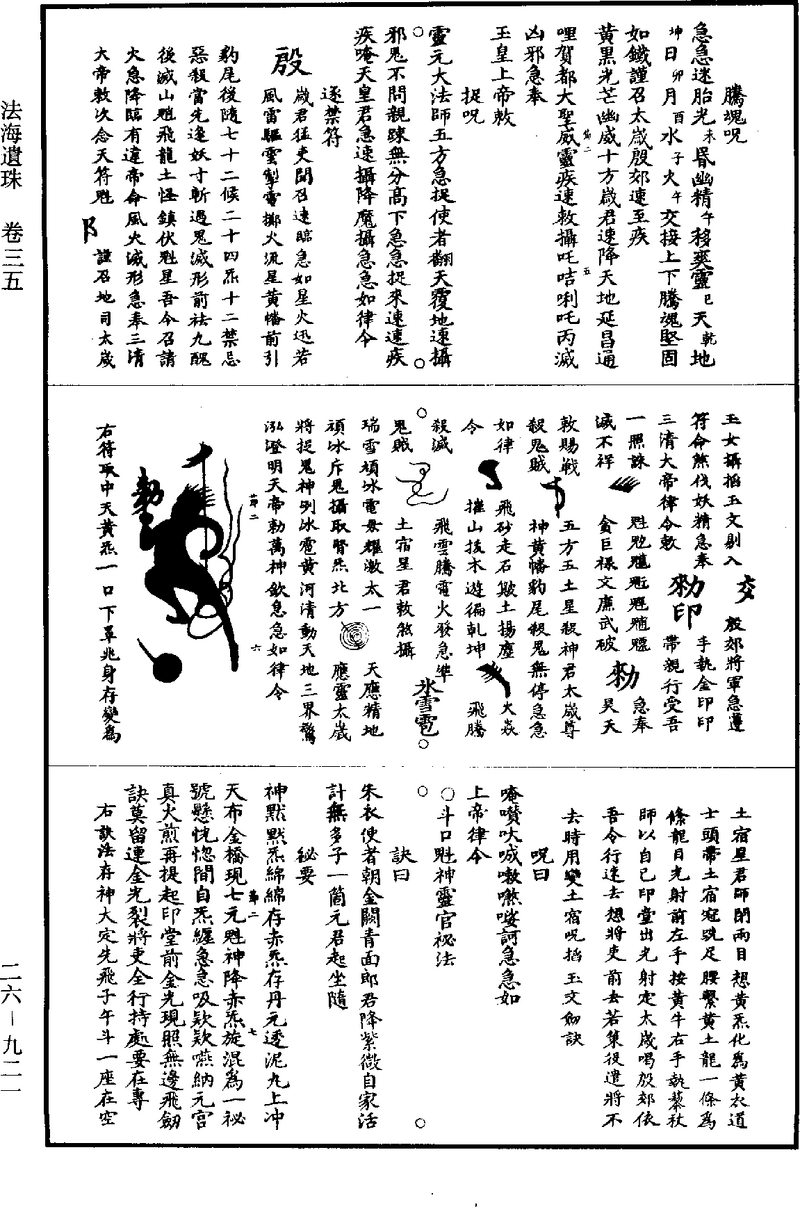 法海遺珠 卷三五
二六—九二一
騰魂呪
急急迷胎光未晷幽精午移爽靈巳天乾地
坤日卯月酉水子火午交接上下騰魂堅固
如鐵謹召太歲殷郊速至疾
黃黑光芒幽威十方歲君速降天地延昌通
哩賀都大聖威靈疾速敕攝吒咭唎吒丙滅
凶邪急奉
玉皇上帝敕
捉呪
靈元大法師五方急捉使者翻天覆地速攝
邪鬼不問親踈無分高下急急捉來速速疾
疾唵天皇君急速攝降魔攝急急如律令
逐禁符
殷
歲君猛吏聞召速臨急如星火迅若
風雷驅雲掣電擲火流星黃幡前引
豹尾後隨七十二候二十四炁十二禁忌
惡殺當先逢妖寸斬過鬼滅形前袪九醜
後滅山魈飛龍土怪鎮伏魁星吾今召請
火急降臨有違帝命風火滅形急奉三清
大帝敕次念天符魁
謹召地司太歲
玉女攝掐玉文剔入
殷郊將軍急遵
符命無伐妖精急奉
手執金印印
三清大帝律令敕
勑印
帶親行受吾
一照誅
魁䰢魓魒䰢魓魒
急奉
滅不祥
貪巨祿文廉武破
勑
昊天
敕賜戰
五方五土星殺神君太歲尊
殺鬼賊
神黃幡豹尾殺鬼無停急急
如律
飛砂走石欺土揚塵
火焱
令
摧山拔木遊徧乾坤
飛騰
殺滅
飛雲騰電火發急準
氷雪雹
鬼賊
土宿星君敕煞攝
瑞雪頑冰電母耀激太一
天應精地
頑冰斥鬼攝取腎炁北方
應靈太歲
將捉鬼神列冰雹黃河清動天地三界驚
泓澄明天帝勑萬神欽急急如律令
勑
右符取中天黃炁一口下罩兆身存變為
土宿星君師閉兩目想黃炁化為黃衣道
士頭帶土宿冠跣足腰繫黃土龍一條為
絛龍目光射前左手按黃牛右手執藜杖
師以自己印堂出光射定太歲喝殷郊依
吾令行速去想將吏前去若策役遣將不
去時用變土宿呪掐玉文劒訣
呪曰
唵㘕吠㖑嗷嘫唼訶急急如
上帝律令
○斗口魁神靈官祕法
訣曰
朱衣使者朝金闕青面郎君降紫微自家活
計無多子一箇元君起坐隨
祕要
神默默炁綿綿存赤炁存丹元透泥丸上冲
天布金橋現七元魁神降赤炁旋混為一祕
號懸恍惚間自炁纏急急吸欵欵嚥納元宮
真火煎再提起印堂前金光現照無邊飛劒
訣莫留連金光裂將吏全行持處要在專
右訣法存神大定先飛子午斗一座在空